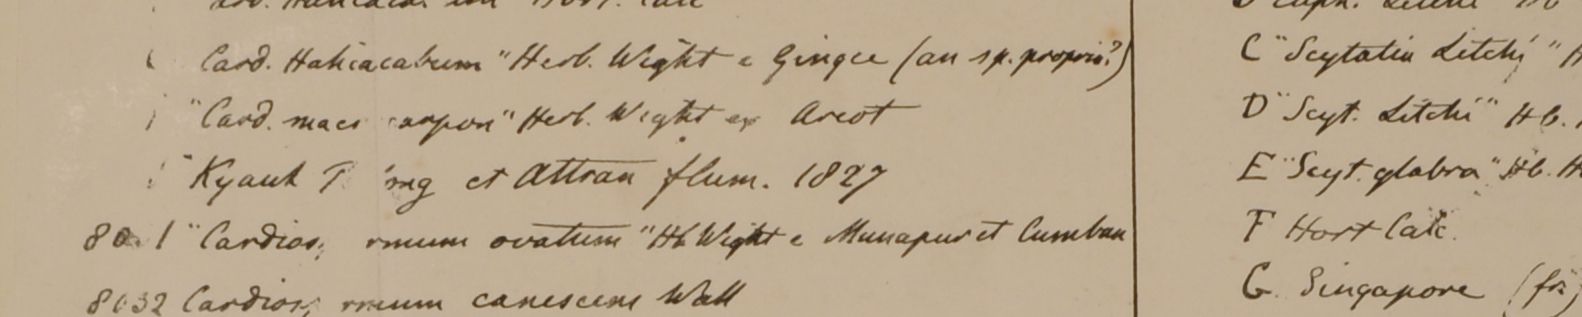 Card. Halicacabum" Herb. Wight e Gingee (an sp. propria?)
"Card. macr carpon" Herb. Wight ex Arcot
Kyauk et Attran flum. 1827
"Cardios rmum ovatum" Hb Wight e Munapur et Cumbau
8032 Cardios rmum canescens Wall
C "Scytalia Litchi"
D "Scyt. Litchi" Hb.
E "Scyt. glabra" Hb.
F Hort Calc.
G. Singapore